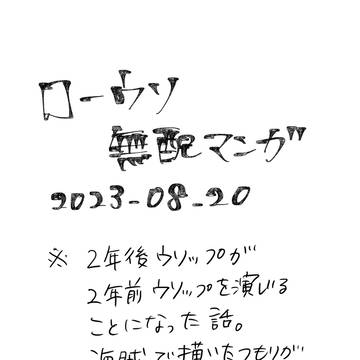 ローウソ
無配マンガ
2023-08-20
※ 2年後ウソップが
2年前ウソップを演じる
ことになった話。
海賊で描いたつもりが